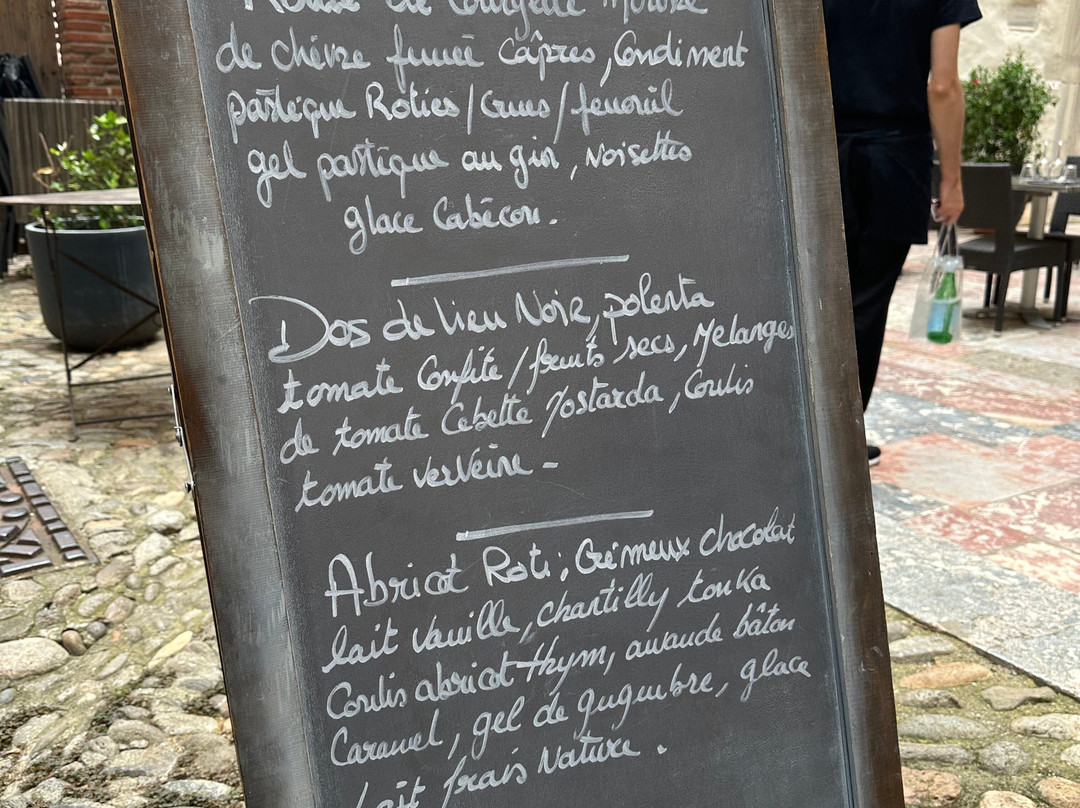 Rouse de Courgette Mousse
de chèvre fumé Câpres, Condiment
pastèque Roties / Crues / fenouil
gel pastèque au gin, Noisettes
glace Cabécou.
Dos de lieu Noir, polenta
tomate Confite / fruits secs, Melanges
de tomate Cebette Mostarda, Coulis
tomate verveine -
Abricot Roti, Crémeux chocolat
lait Vanille, chantilly tonka
Coulis abricot thym, amande bâton
Caramel, gel de gugembre, glace
lait frais Nature.